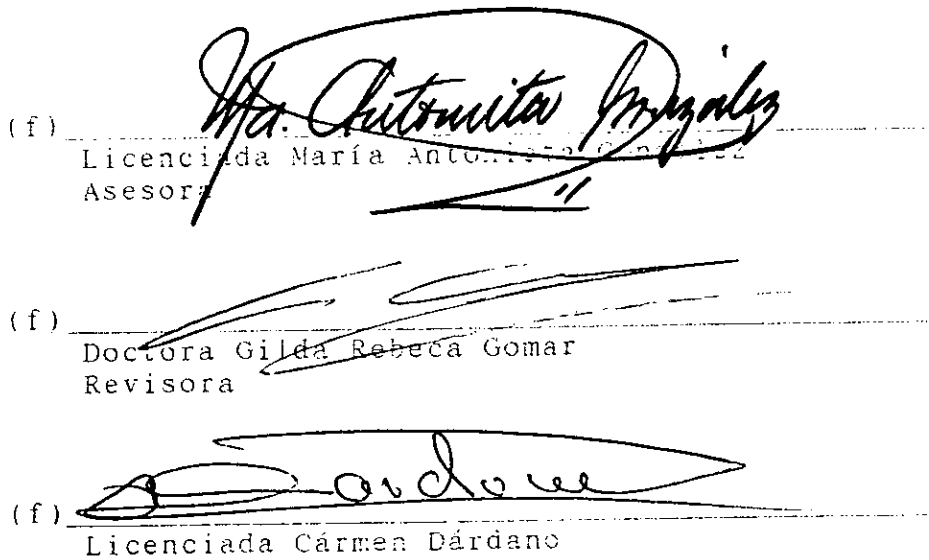 Ma. Antonieta González
(f)
Licenciada María Antonieta González
Asesora
(f)
Doctora Gilda Rebeca Gomar
Revisora
(f)
Licenciada Cármen Dárdano